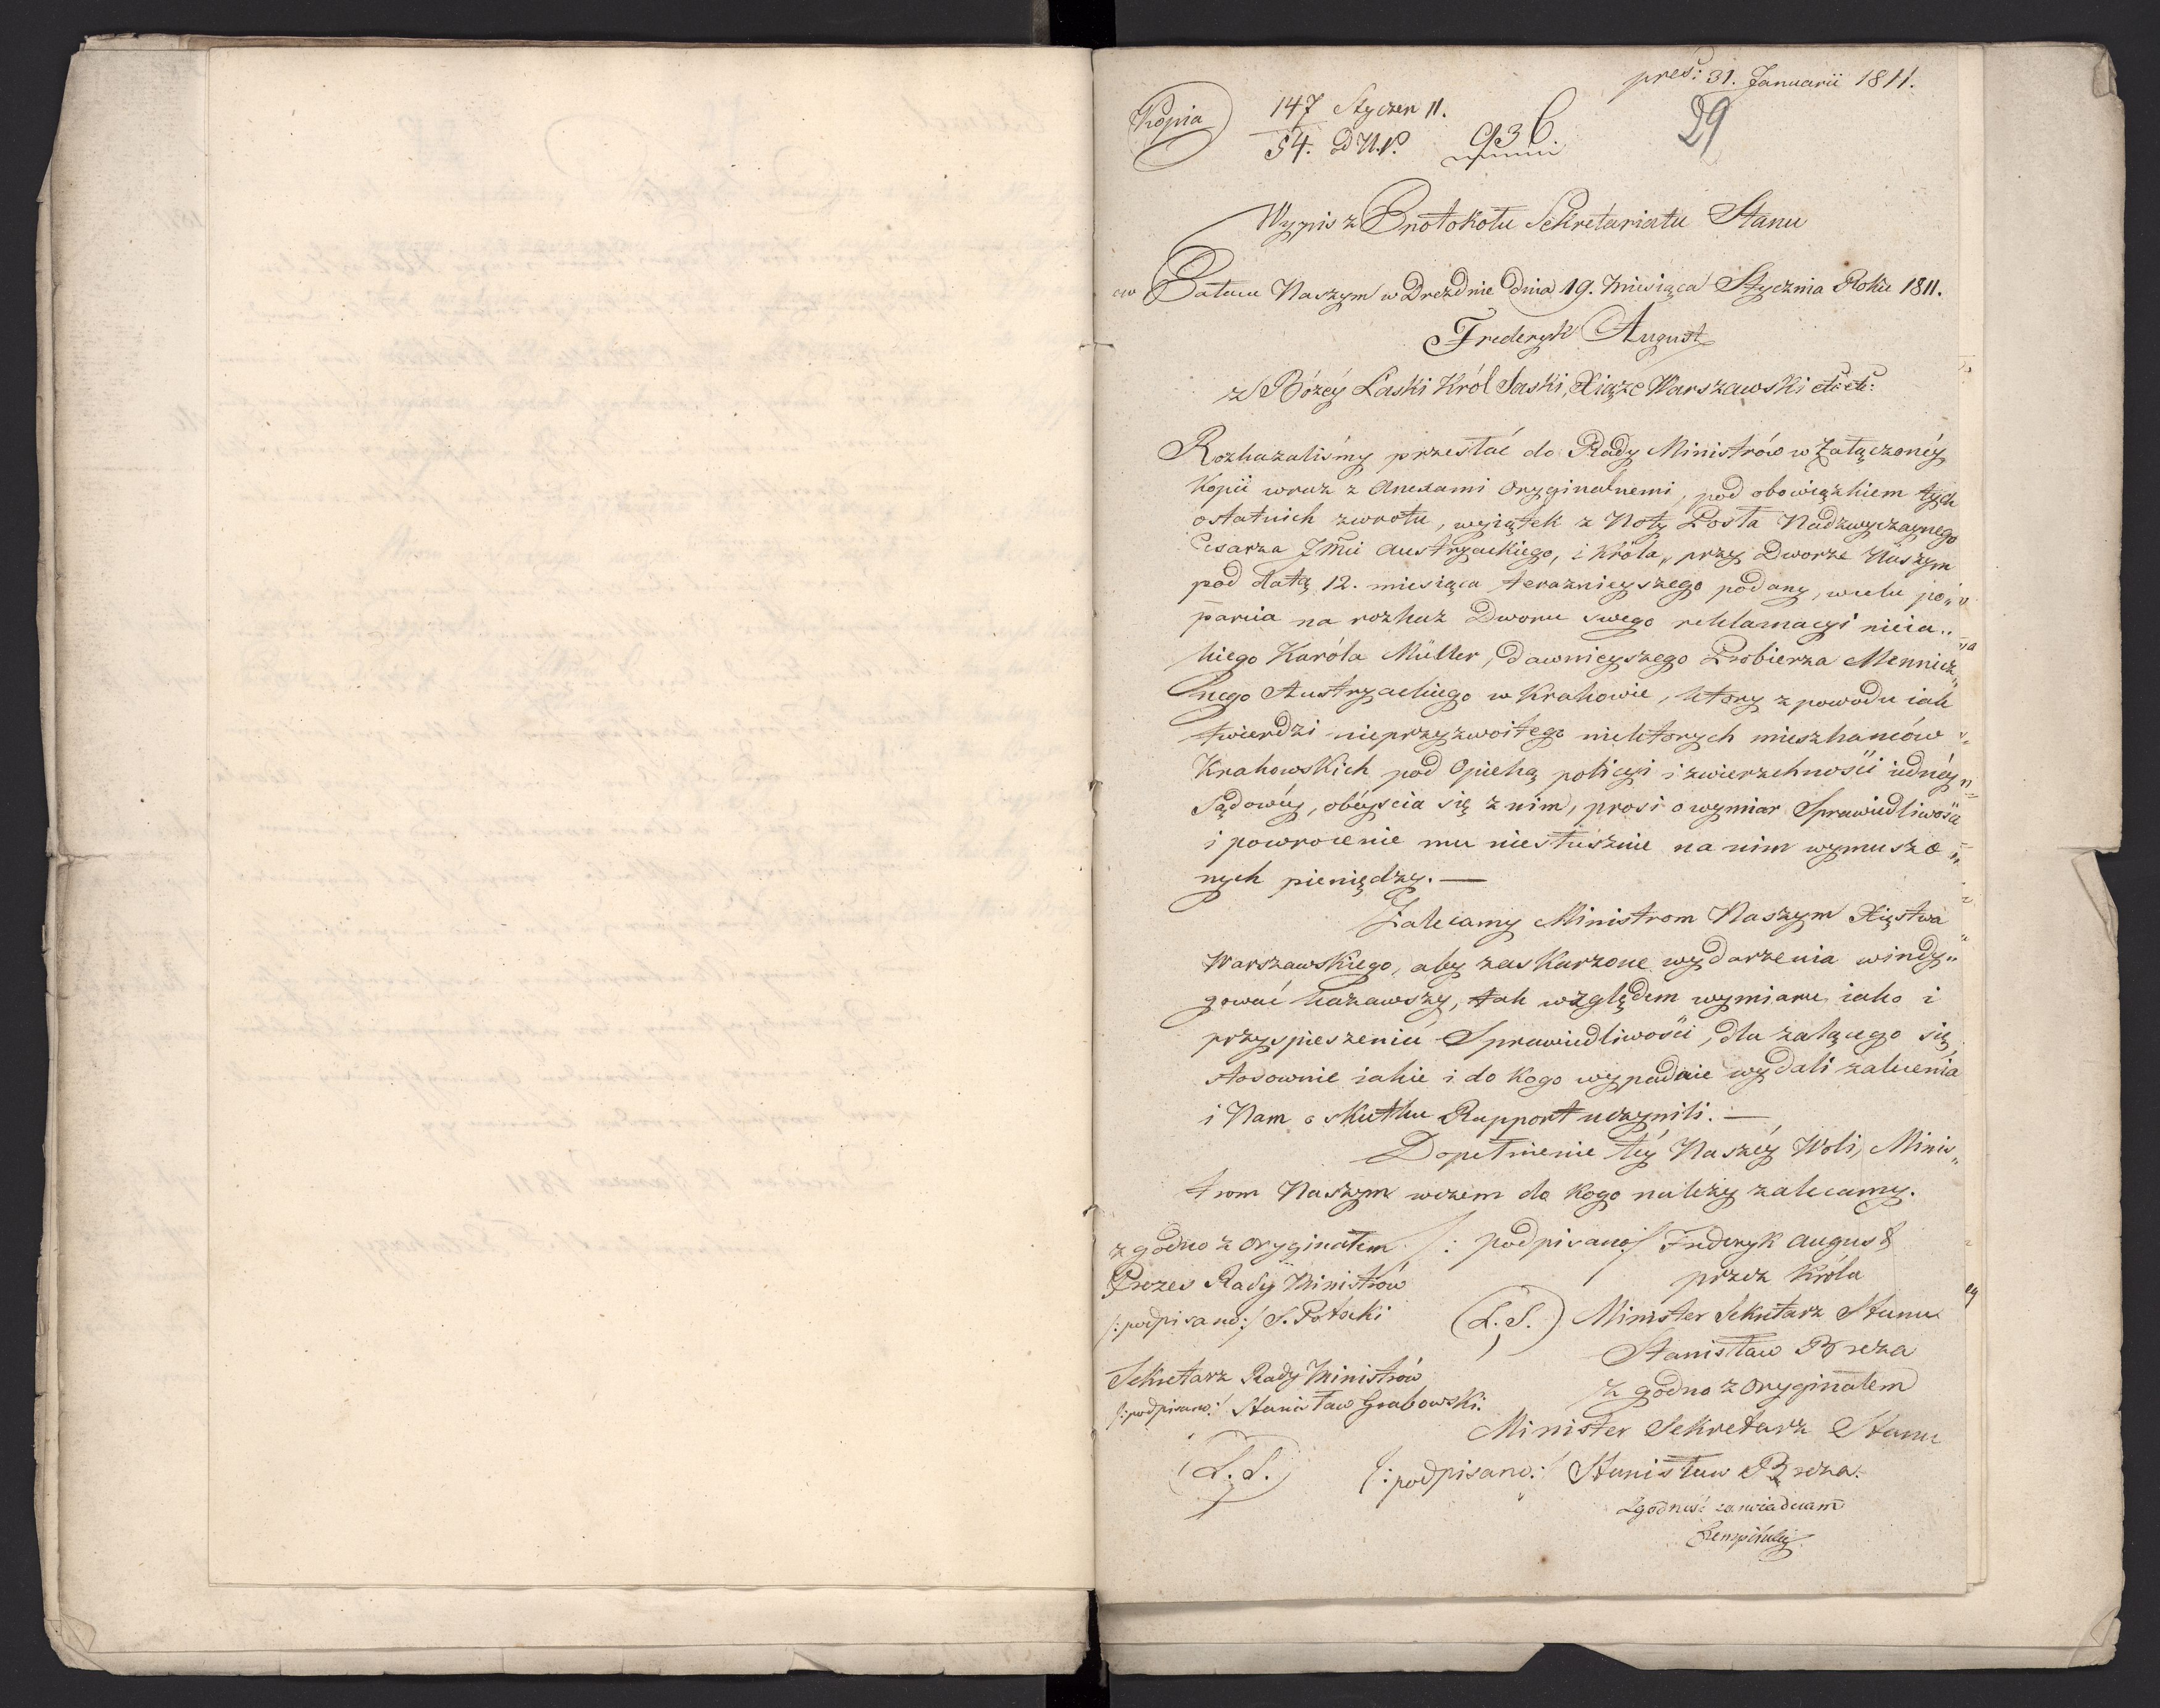 pres: 31. Januarii 1811.
Kopia 147 Styczen 11.
54. D N.P. 936. 29
Wypis z Protokołu Sekretariatu Stanu
w Pałacu Naszym w Dreznie Dnia 19. Miesiąca Stycznia Roku 1811.
Frederyk August
z Bożey Łaski Król Saski, Xiąże Warszawski etc: etc:
Rozkazaliśmy przesłać do Rady Ministrów w Załączonéy
Kopii wraz z Anexami Oryginalnemi, pod obowiązkiem tych
ostatnich zwrotu, wyiątek z Noty Posta Nadzwyczaynego
Cesarza JMci Austryackiego, i Króla, przy Dworze Naszym
pod datą 12. miesiąca teraznieyszego podany, wcelu po„
parcia na rozkaz Dworu swego reklamacyi nieia„
kiego Karóla Müller, dawnieyszego Probierza Mennicz„
nego Austryackiego w Krakowie, ktory z powodu iak
twierdzi nieprzyzwoitego niektorych mieszkancow
Krakowskich pod Opieką policyi i zwierzchności iednéy
Sądowéy, obéyscia się z nim, prosi o wymiar Sprawiedliwości
i powrocenie mu niesłusznie na nim wymuszo„
nych pieniędzy. —
Zalecamy Ministrom Naszym Xięstwa
Warszawskiego, aby zaskarzone wydarzenia windy„
gować kazawszy, tak względem wymiaru iako i
przyspieszeniu Sprawiedliwości, dla zalącego się,
stosownie iakie i do kogo wypadnie wydali zalecenia
i Nam o skutku Rapport uczynili. —
Dopełnienie téy Naszéy Woli, Minis„
trom Naszym wczem do kogo należy zalecamy.
zgodno z oryginałem /: podpisano/ Frederyk August
Prezes Rady Ministrów przez Króla
/: podpisano:/ S. Potocki (L.S.) Minister Sekretarz Stanu
Stanisław Breza
Sekretarz Rady Ministrów zgodno z Oryginałem
/: podpisano: Stanisław Grabowski. Minister Sekretarz Stanu
(L.S.) /: podpisano:/ Stanisław Breza.
Zgodność zaswiadczam